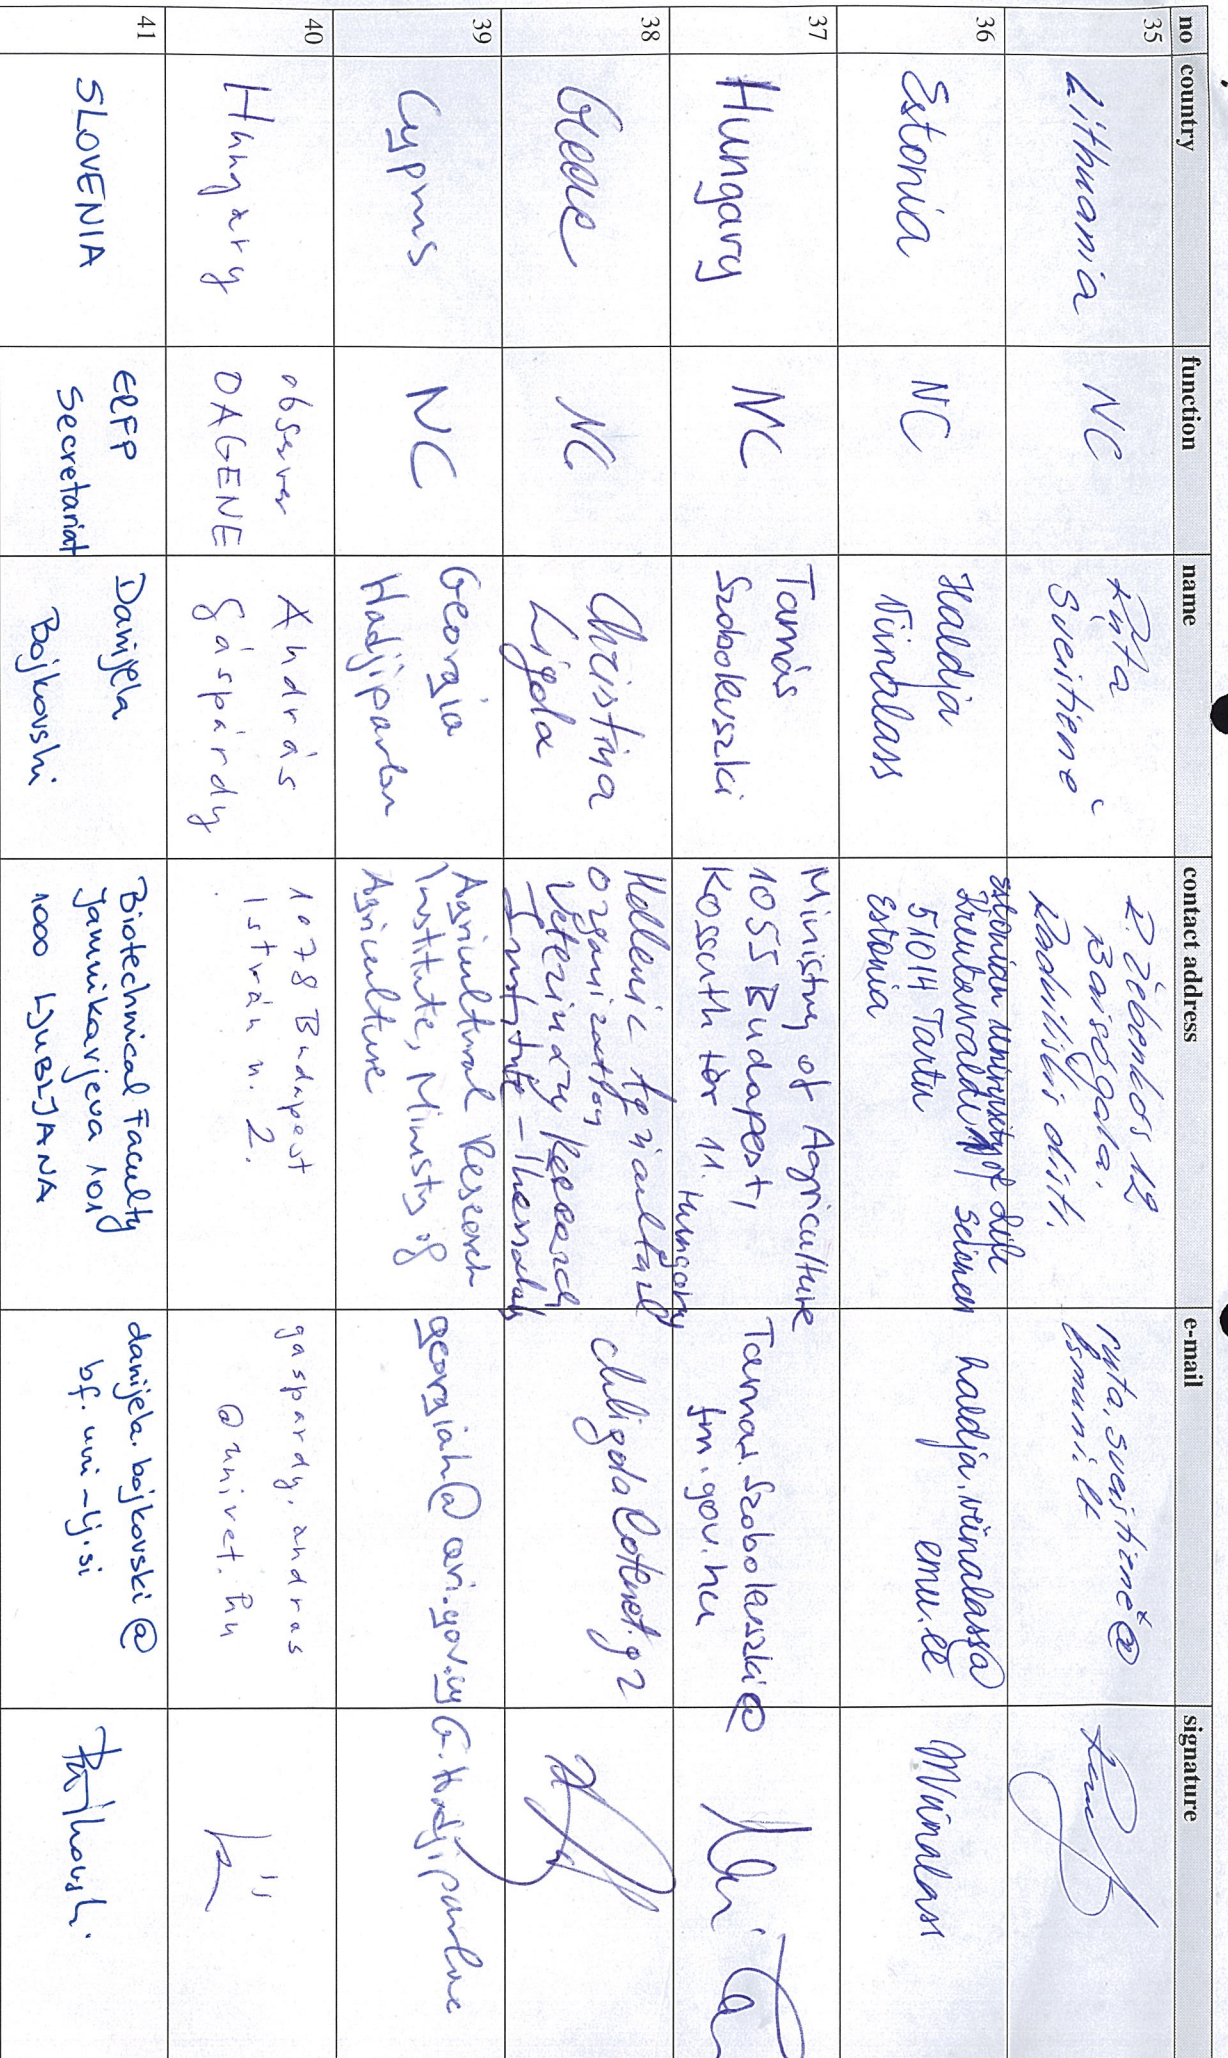 no country function name contact address e-mail signature
35 Lithuania NC Rūta
Šveistienė
R. Žebenkos 12
Baisogala,
Radviliškis distr.
ruta.sveistiene@
lsmuni.lt
36 Estonia NC Haldja
Viinalass
Estonian University of Life
Kreutzwaldi Sciences
51014 Tartu
Estonia
haldja.viinalass@
emu.ee
Mviinalass
37 Hungary NC Tamás
Szobolevszki
Ministry of Agriculture
1055 Budapest,
Kossuth tér 11. Hungary
Tamas.Szobolevszki@
fm.gov.hu
38 Greece NC Christina
Ligda
Hellenic Agricultural
Organization
Veterinary Research
Institute -
chligda@otenet.gr
39 Cyprus NC Georgia
Hadjipavlou
Agricultural Research
Institute, Ministry of
Agriculture
georgiah@ari.gov.cy
G. Hadjipavlou
40 Hungary observer
DAGENE
András
Gáspárdy
1078 Budapest
István u. 2.
gaspardy.andras
@univet.hu
41 SLOVENIA ERFP
Secretariat
Danijela
Bojkovski
Biotechnical Faculty
Jamnikarjeva 101
1000 LJUBLJANA
danijela.bojkovski@
bf.uni-lj.si
Bojkovski